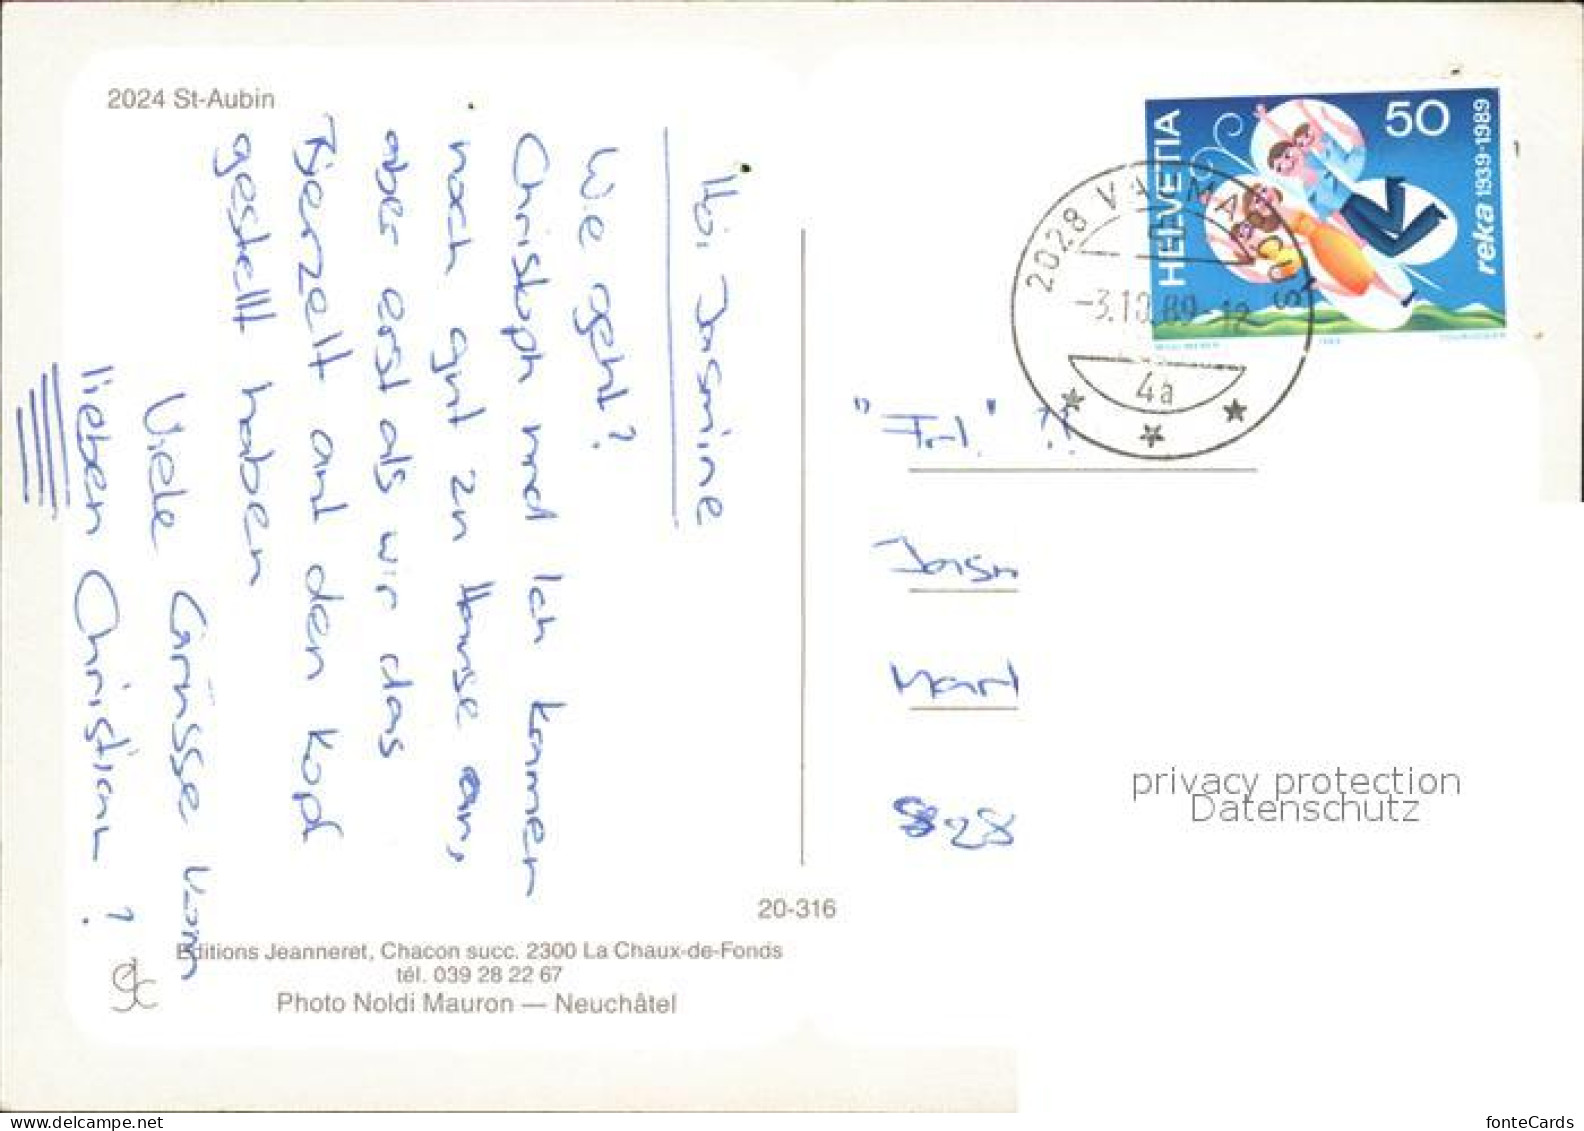 2024 St-Aubin
Hoi Jasmine
Wie geht?
Christoph und Ich kammen
noch gut zu Hause an,
aber erst als wir das
Tjerzelt auf den Kopf
gestellt haben
Viele Grüsse vom
lieben Christian ?
20-316
Editions Jeanneret, Chacon succ. 2300 La Chaux-de-Fonds
tél. 039 28 22 67
Photo Noldi Mauron — Neuchâtel
HELVETIA
50
reka 1939-1989
2028 VAUMARCUS
-3.10.89-12
4a
"Frl." ?!
Jasm
828
privacy protection
Datenschutz
fonteCards